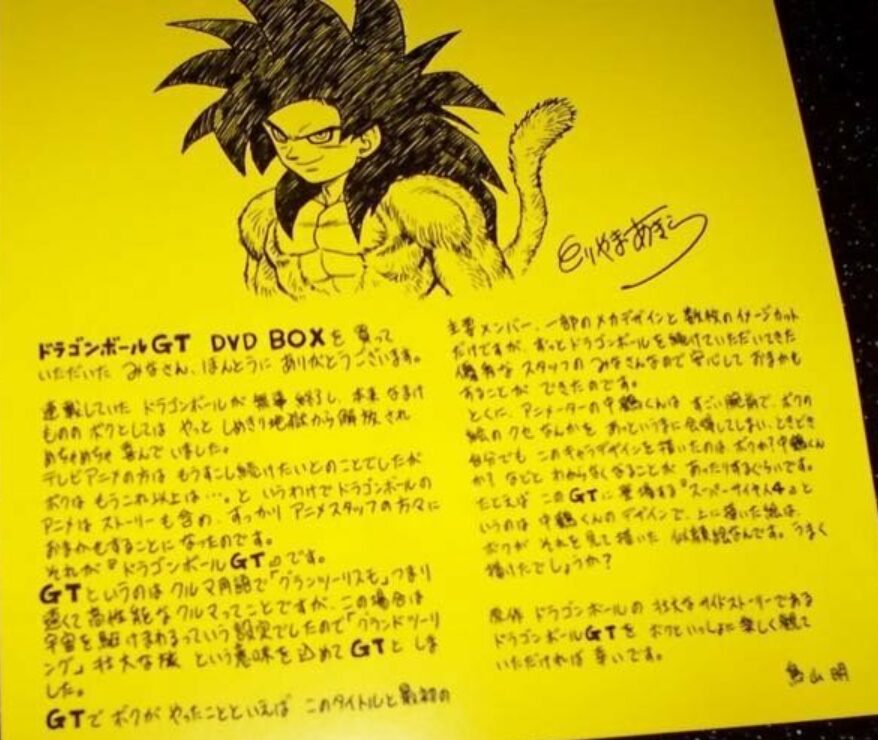 とりやまあきら
ドラゴンボールGT DVD BOXを買って
いただいた みなさん、ほんとうに ありがとうございます。
連載していた ドラゴンボールが 無事 終了し、本来 なまけ
ものの ボクとしては やっと しめきり地獄から 解放され
めちゃめちゃ 喜んで いました。
テレビアニメの方は もうすこし続けたいとのことでしたが
ボクは もうこれ以上は…。と いうわけで ドラゴンボールの
アニメは ストーリーも含め、すっかり アニメスタッフの方々に
おまかせすることに なったのです。
それが『ドラゴンボールGT』です。
GTというのは クルマ用語で「グランツーリスモ」つまり
速くて 高性能な クルマってことですが、この場合は
宇宙を 駆けまわるっていう 設定でしたので「グランドツーリ
ング」壮大な旅 という意味を 込めて GTと しま
した。
GTで ボクが やったことといえば このタイトルと 最初の
主要メンバー、一部のメカデザインと 数枚の イメージカット
だけですが、ずっとドラゴンボールを 続けていただいてきた
優秀な スタッフの みなさんなので 安心して おまかせ
することが できたのです。
とくに、アニメーターの 中鶴くんは すごい腕前で、ボクの
絵の クセ なんかを あっというまに 会得してしまい、ときどき
自分でも このキャラデザインを 描いたのは ボクか?中鶴くん
か? などと わからなくなることが あったりするぐらいです。
たとえば この GTに 登場する『スーパーサイヤ人4』と
いうのは 中鶴くんの デザインで、上に描いた絵は、
ボクが それを見て 描いた 似顔絵なんです。うまく
描けたでしょうか?
原作 ドラゴンボールの 壮大なサイドストーリーである
ドラゴンボールGTを ボクといっしょに 楽しく 観て
いただければ 幸いです。
鳥山明